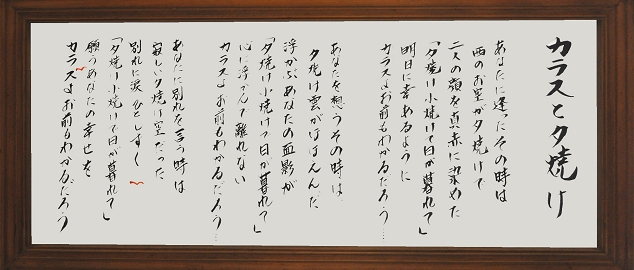 カラスと夕焼け
あなたに逢ったその時は
西のお空が夕焼けで
二人の顔を真赤に染めた
「夕焼け小焼けで日が暮れて」
明日に幸あるように
カラスよお前もわかるだろう…
あなたを想うその時は
夕焼け雲がほほえんだ
浮かぶあなたの面影が
「夕焼け小焼けで日が暮れて」
心に浮かんで離れない
カラスよお前もわかるだろう…
あなたに別れを言う時は
寂しい夕焼け空だった
別れに涙ひとしずく
「夕焼け小焼けで日が暮れて」
願うあなたの幸せを
カラスよお前もわかるだろう